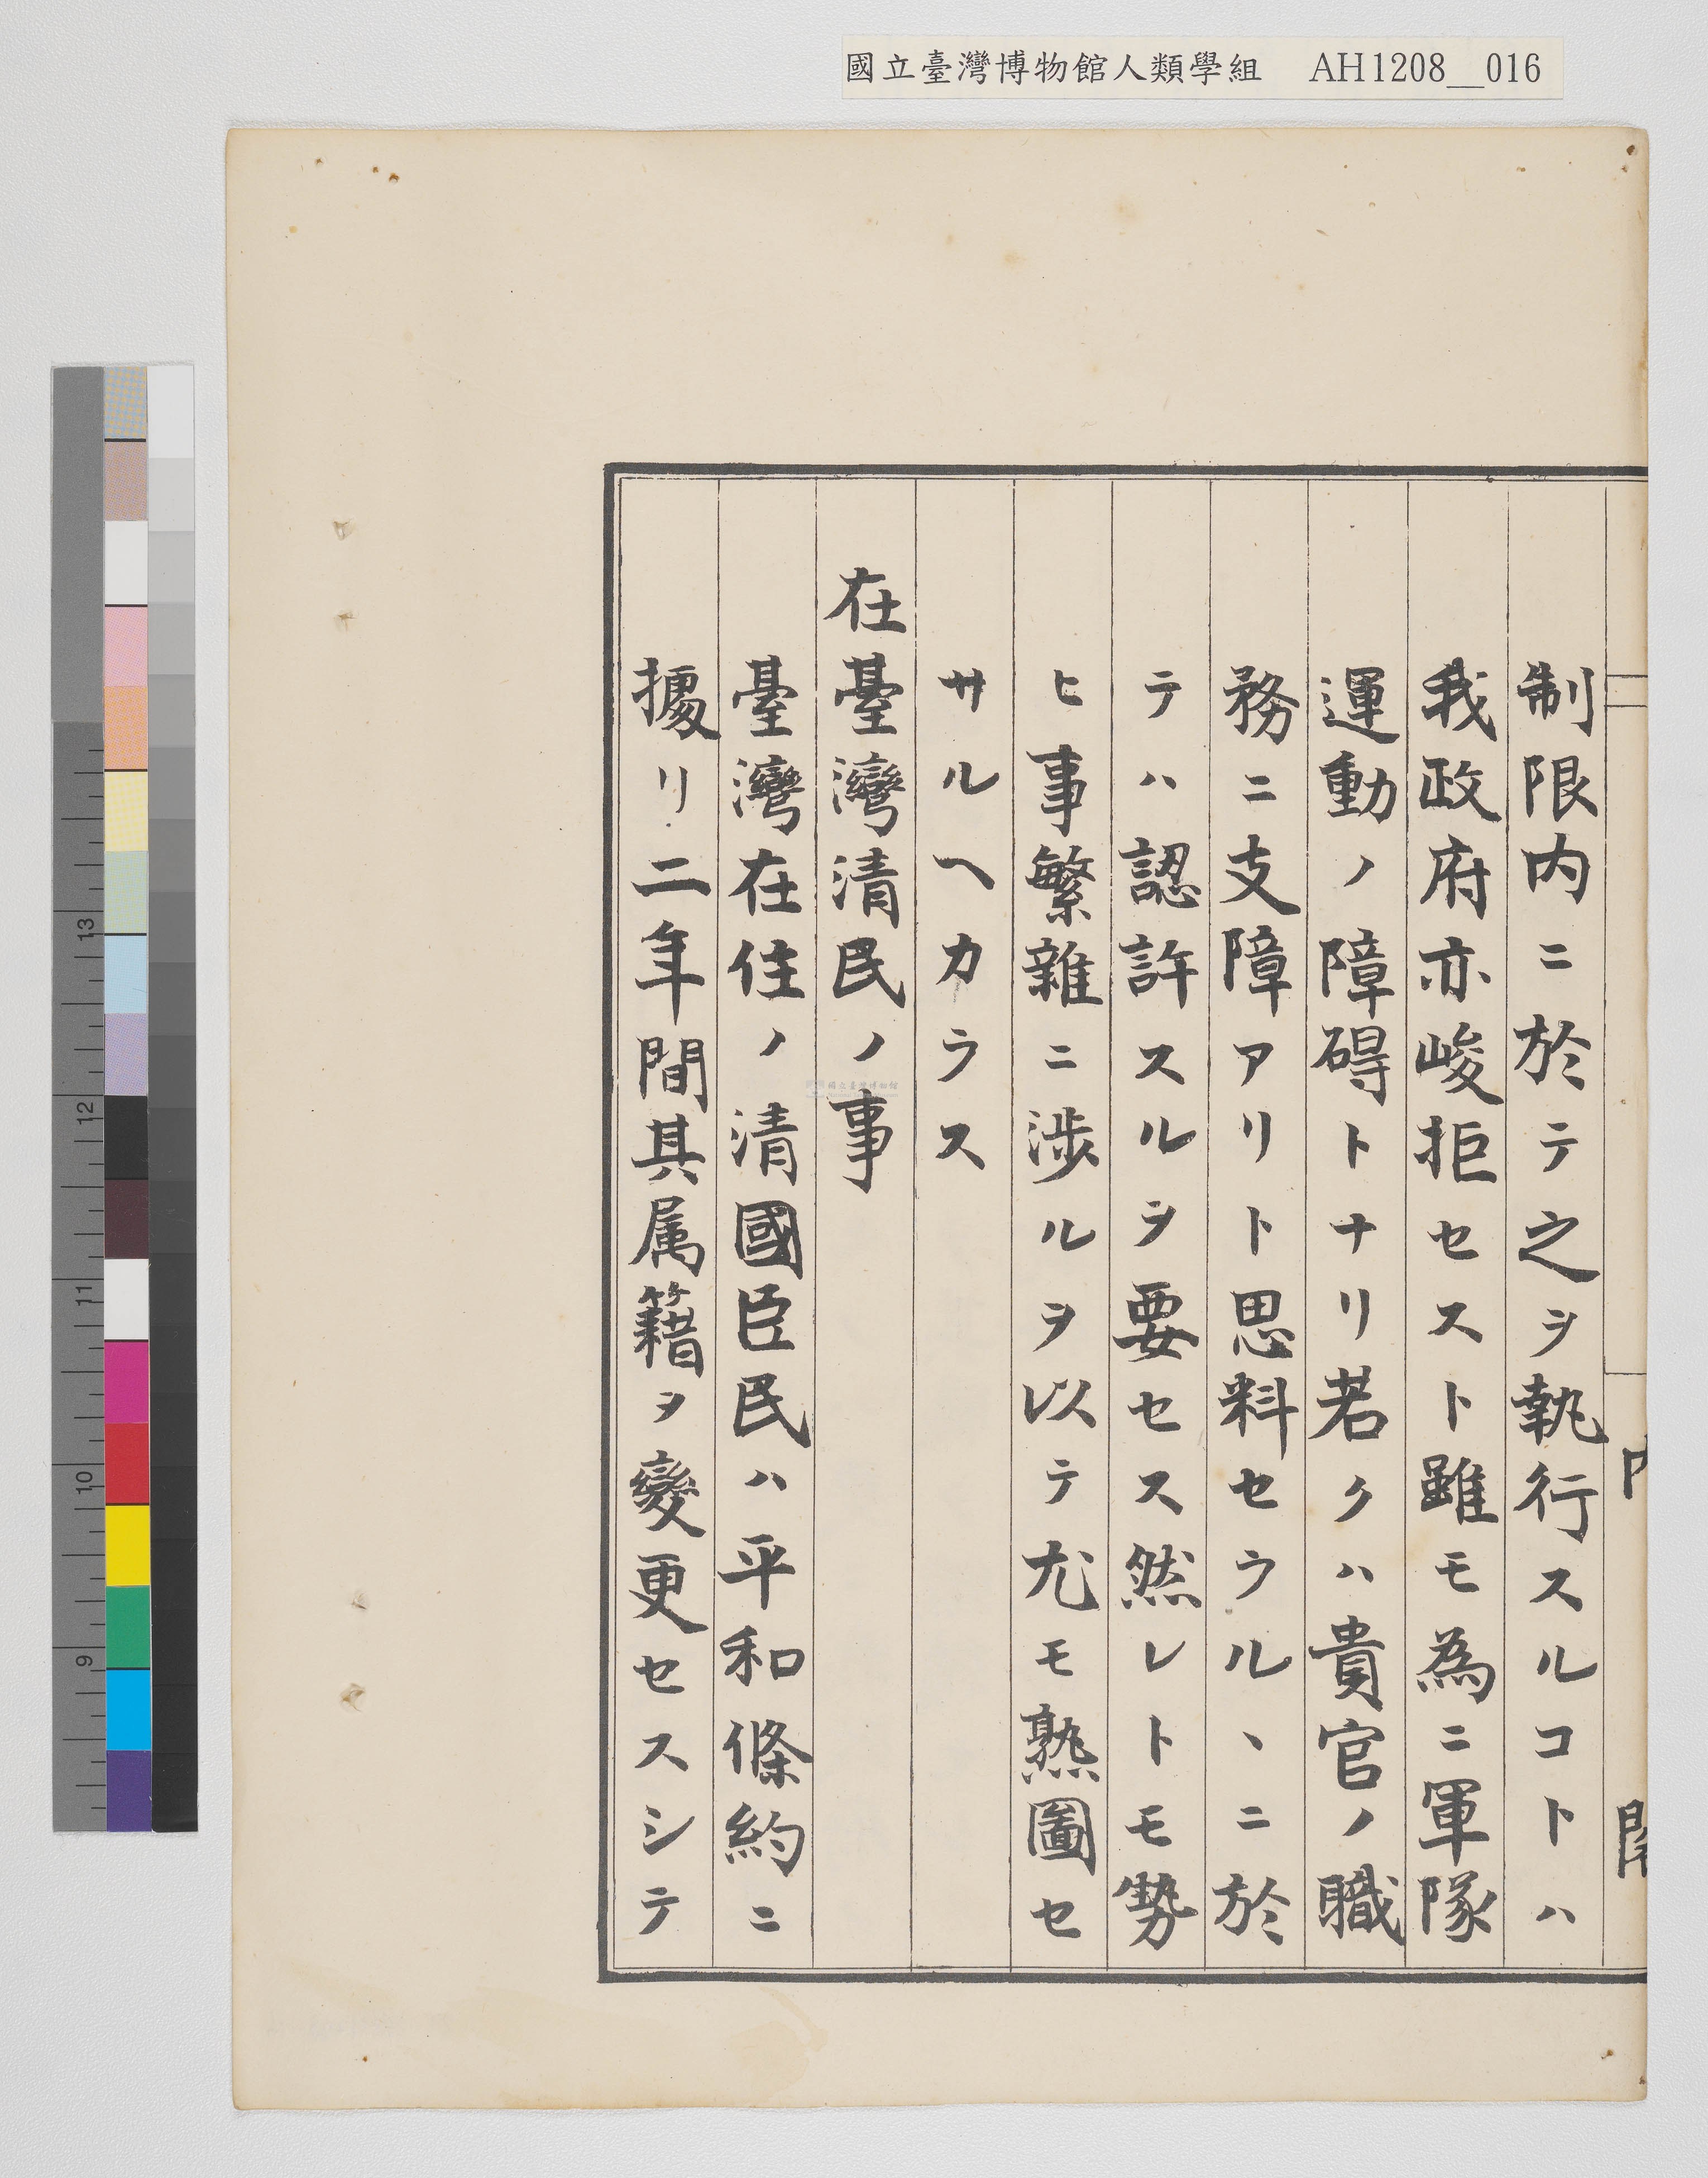 國立臺灣博物館人類學組 AH1208__016
制限内ニ於テ之ヲ執行スルコトハ
我政府亦峻拒セスト雖モ為ニ軍隊
運動ノ障碍トナリ若クハ貴官ノ職
務ニ支障アリト思料セラルヽニ於
テハ認許スルヲ要セス然レトモ勢
ヒ事繁雜ニ渉ルヲ以テ尤モ熟圖セ
サルヘカラス
在臺灣清民ノ事
臺灣在住ノ清國臣民ハ平和條約ニ
據リ二年間其属籍ヲ變更セスシテ
13
12
11
10
9